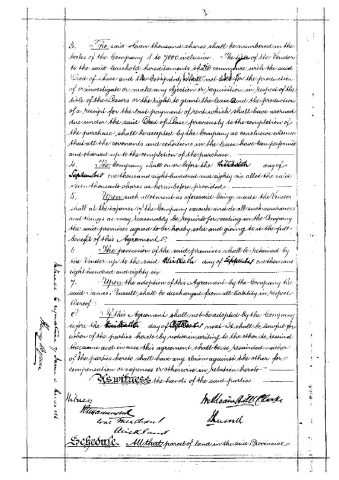 2
3. The said seven thousand shares shall be numbered in the
books of the Company 1 to 7000 inclusive. The title of the Vendor
to the said leasehold hereditaments shall commence with the said
Deed of Lease and the Company shall not call for the production
of or investigate or make any objection or requisition in respect of the
title of the Lessors or the right to grant the lease and the production
of a receipt for the last payment of rent which shall have accrued
due under the said Deed of Lease previously to the completion of
the purchase shall be accepted by the Company as conclusive evidence
that all the covenants and conditions in the lease have been performed
and observed up to the completion of the purchase.
4. The Company shall on or before the day of
September one thousand eight hundred and eighty six allot the said
seven thousand shares as hereinbefore provided
5. Upon such allotment as aforesaid being made the Vendor
shall at the expense of the Company execute and do all such assurances
and things as may reasonably be required for vesting in the Company
the said premises agreed to be hereby sold and giving to it the full
benefit of this Agreement
6. The possession of the said premises shall be retained by
the Vendor up to the said day of September one thousand
eight hundred and eighty six
7. Upon the adoption of this Agreement by the Company the
said James Russell shall be discharged from all liability in respect
thereof
8. If this Agreement shall not be adopted by the Company
before the day of next it shall be lawful for
either of the parties hereto by notice in writing to the other to rescind
the same and in case this agreement shall be so rescinded neither
of the parties hereto shall have any claim against the other for
compensation or expenses or otherwise in relation hereto
As witness the hands of the said parties
Witness
William Hill
Russell
Auckland
Schedule. All that parcel of land in the said Provincial